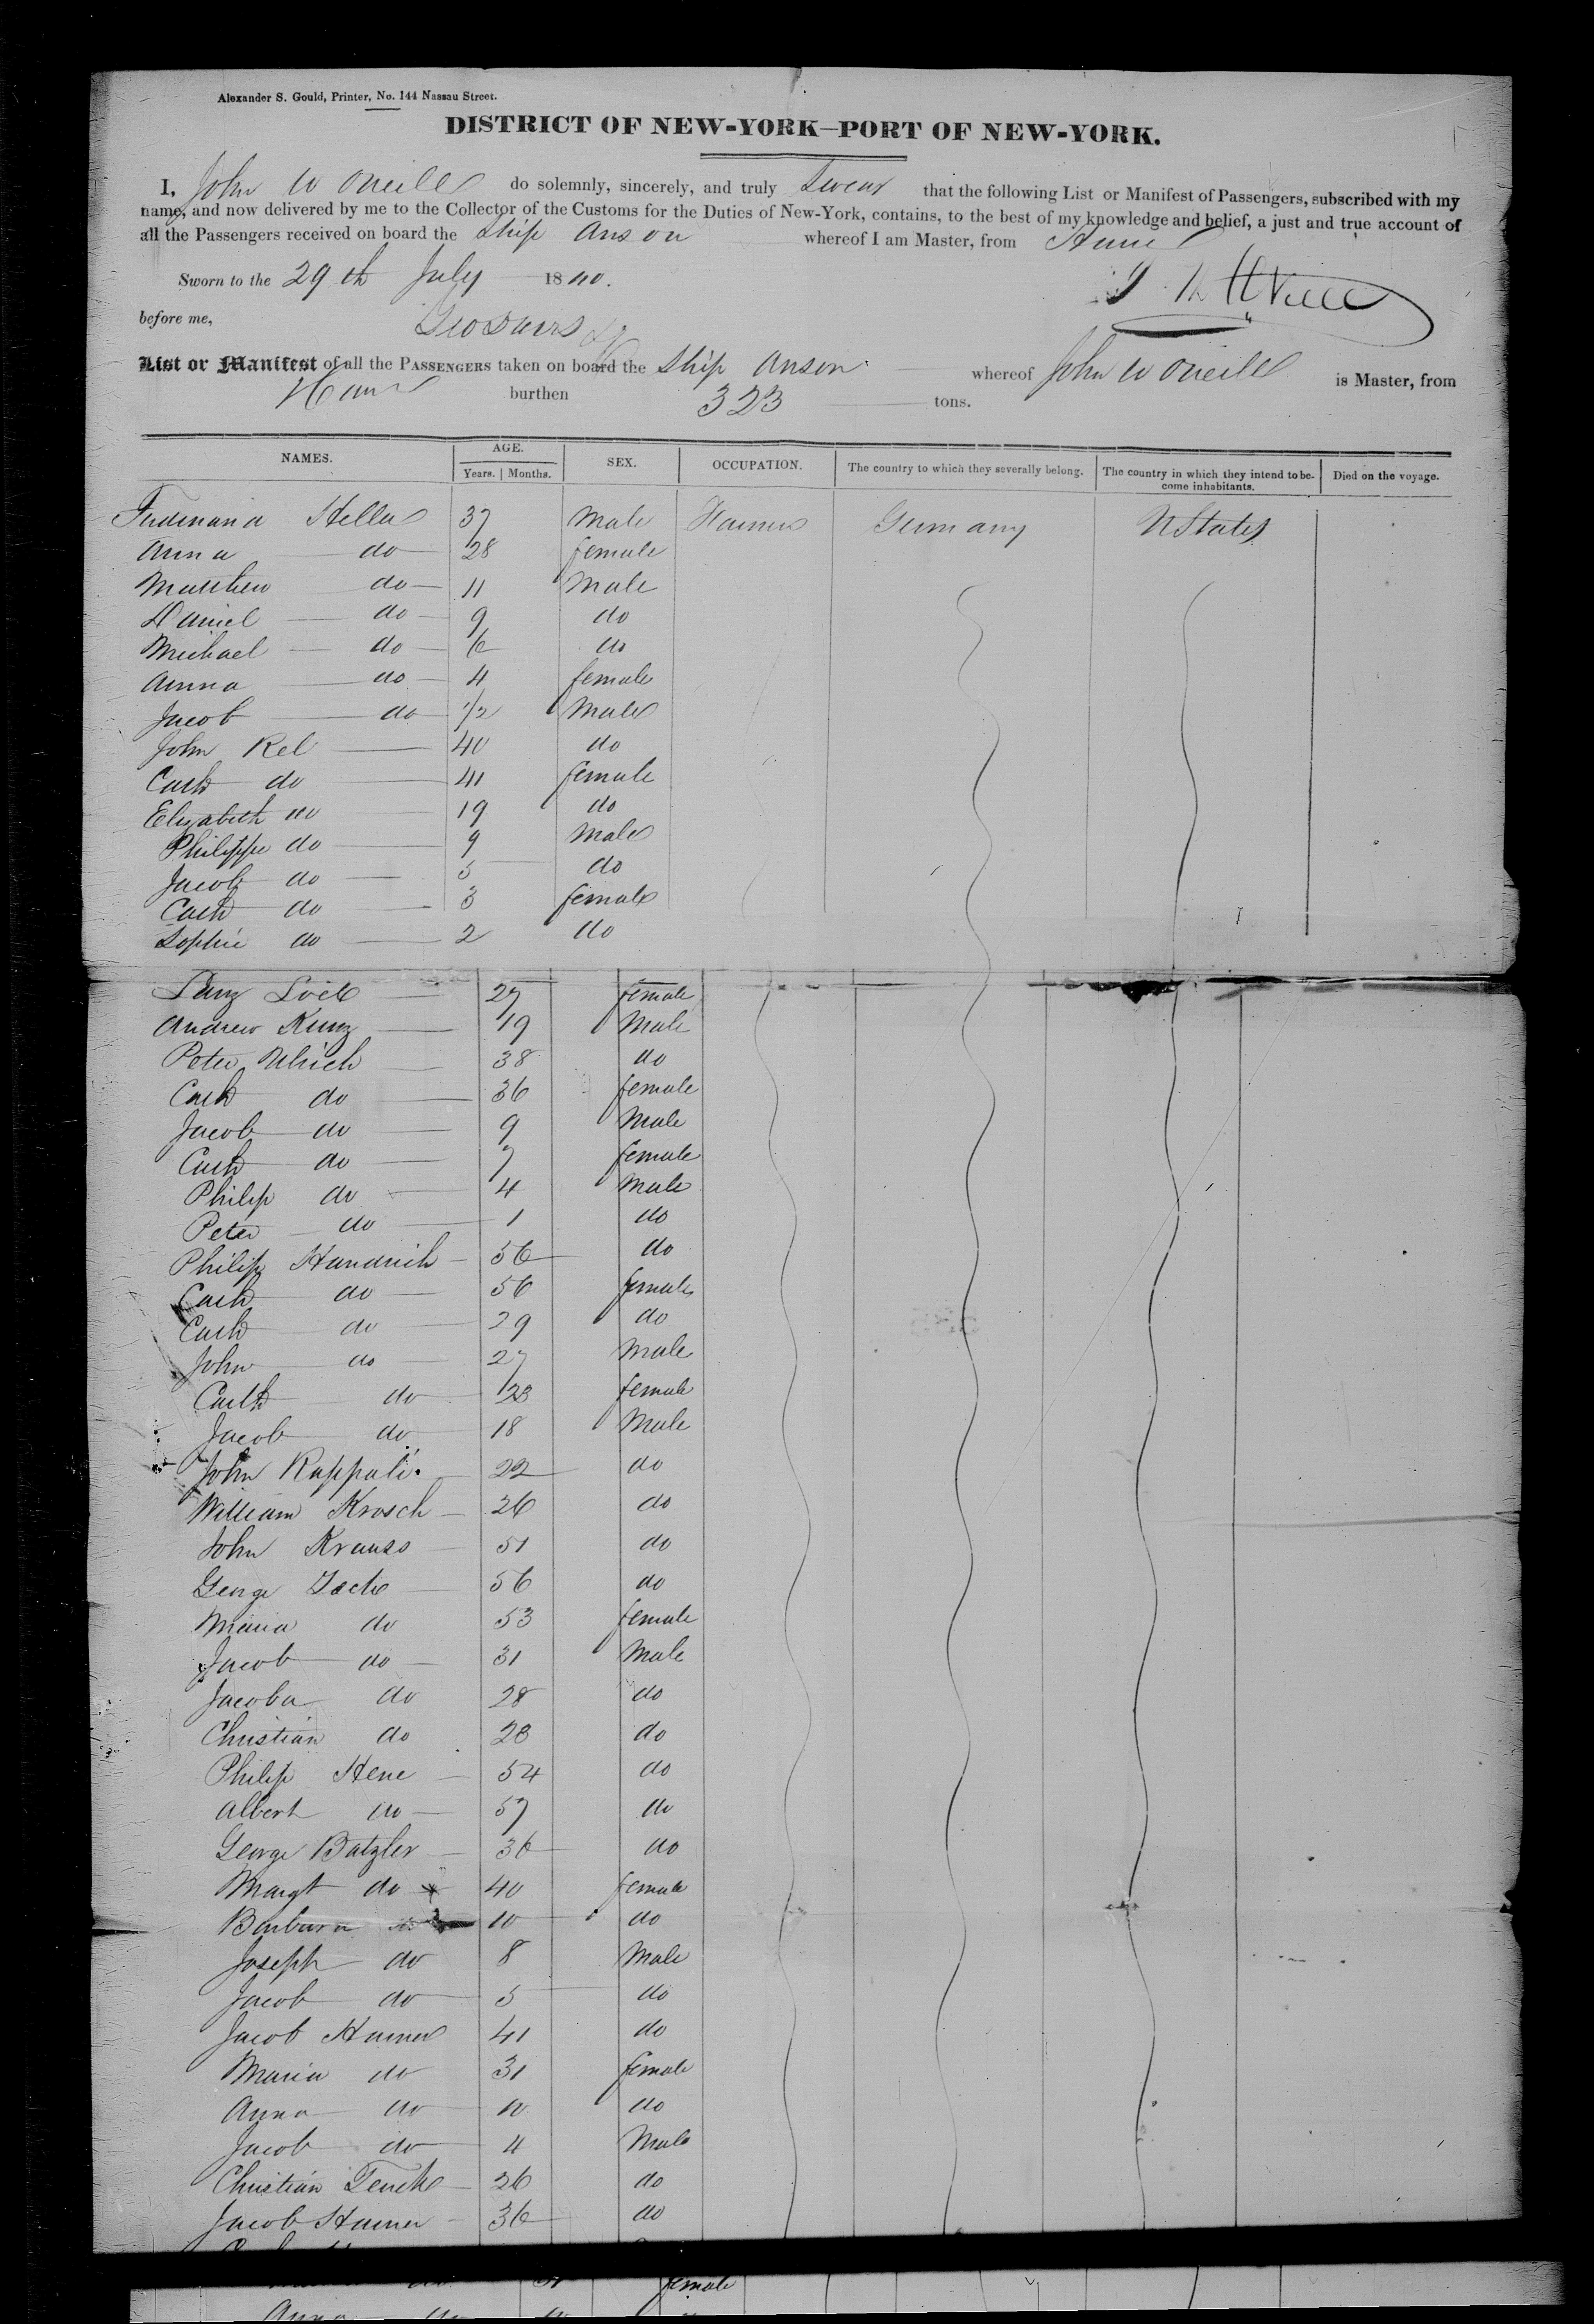 Alexander S. Gould, Printer, No. 144 Nassau Street.
DISTRICT OF NEW-YORK—PORT OF NEW-YORK.
I, John W Oneill do solemnly, sincerely, and truly Swear that the following List or Manifest of Passengers, subscribed with my
name, and now delivered by me to the Collector of the Customs for the Duties of New-York, contains, to the best of my knowledge and belief, a just and true account of
all the Passengers received on board the Ship Anson whereof I am Master, from
Sworn to the 29th July 1840.
before me,
List or Manifest of all the PASSENGERS taken on board the Ship Anson whereof John W Oneill is Master, from
burthen 323 tons.
NAMES. AGE. Years. Months. SEX. OCCUPATION. The country to which they severally belong. The country in which they intend to become inhabitants. Died on the voyage.
Ferdinand Heller 37 Male Farmer Germany UStates
Anna do 28 female
Matthew do 11 Male
Daniel do 9 do
Michael do 6 do
Anna do 4 female
Jacob do 1/2 Male
John Rel 40 do
Cath do 41 female
Elizabeth do 19 do
Philippe do 9 Male
Jacob do 5 do
Cath do 3 female
Sophie do 2 do
27 female
Andrew Kunz 19 Male
Peter Ulrich 38 do
Cath do 36 female
Jacob do 9 Male
Cath do 7 female
Philip do 4 Male
Peter do 1 do
Philip 56 do
Cath do 56 female
Cath do 29 do
John do 27 Male
Cath do 23 female
Jacob do 18 Male
John 22 do
William Krosch 26 do
John Krauss 51 do
George 56 do
Maria do 53 female
Jacob do 31 Male
Jacoba do 28 do
Christian do 23 do
Philip Hene 54 do
Albert do 57 do
George Batzler 36 do
Margt do 40 female
Barbara do 10 do
Joseph do 8 Male
Jacob do 5 do
Jacob Hamer 41 do
Maria do 31 female
Anna do 10 do
Jacob do 4 Male
Christian 26 do
Jacob Hamer 36 do
female
Anna do